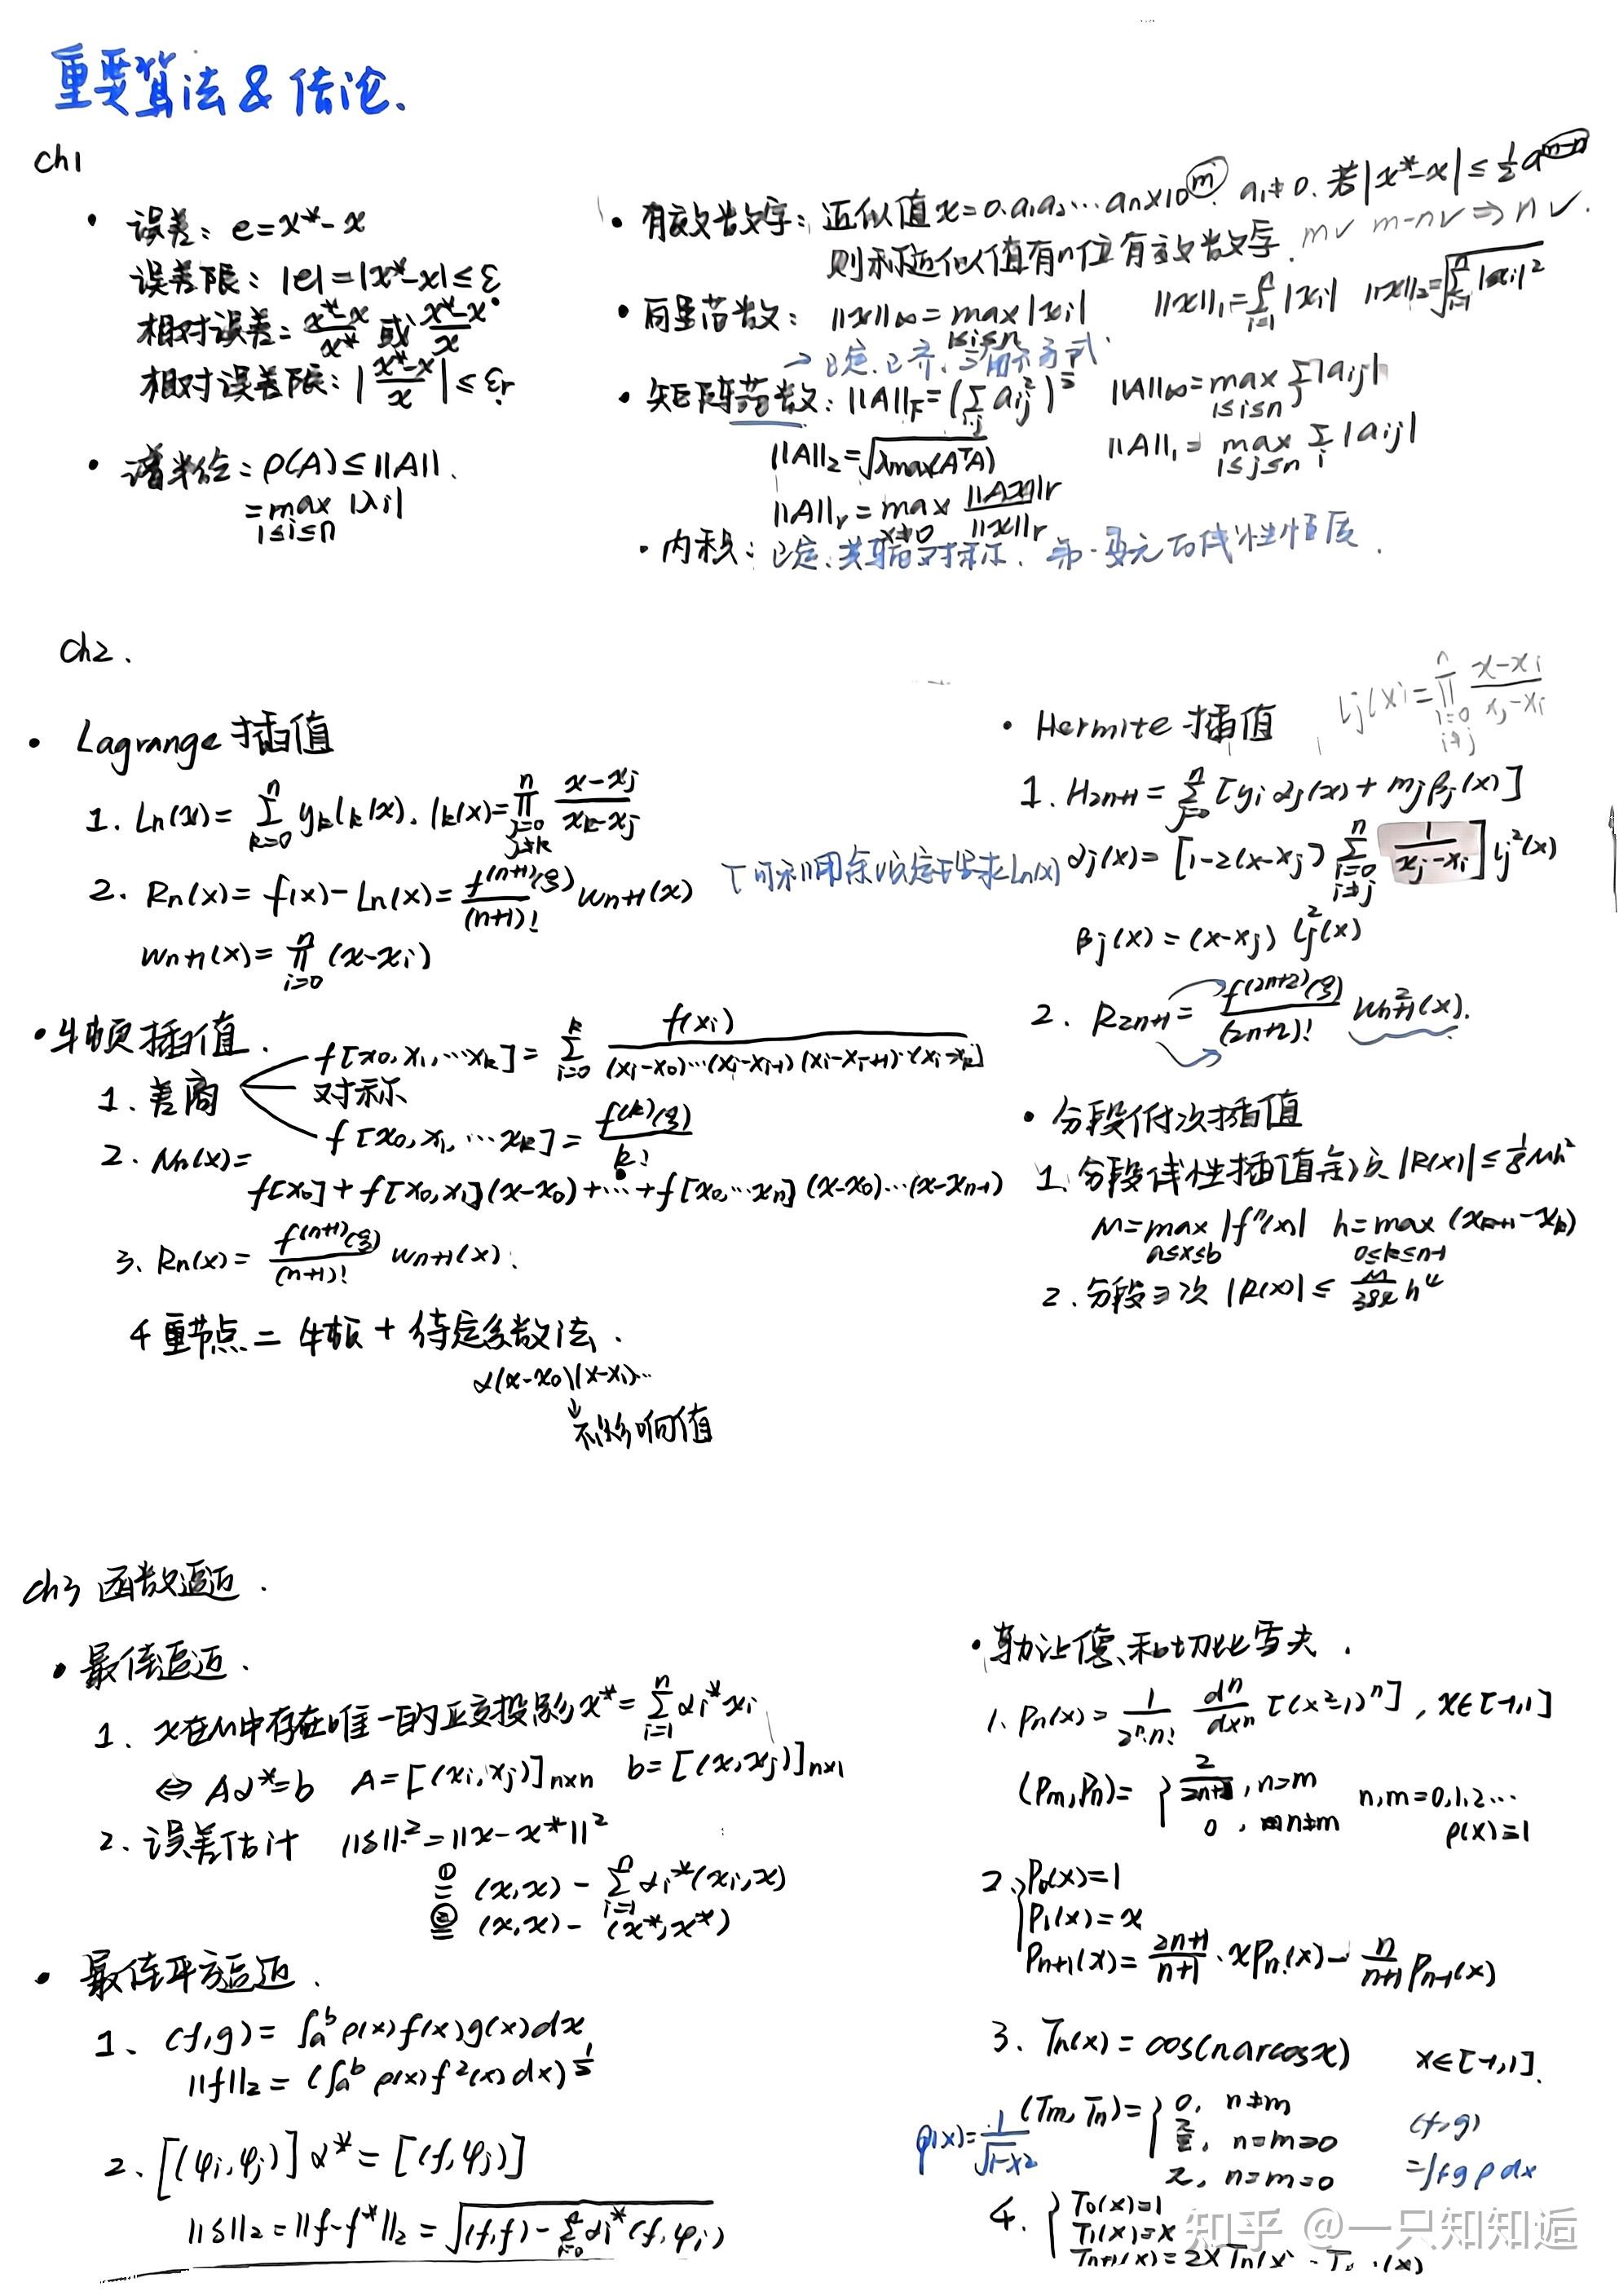 重要算法 & 结论.
ch1
· 误差: e=x*-x
误差限: |e|=|x*-x|≤ε
相对误差: (x*-x)/x* 或 (x*-x)/x
相对误差限: |(x*-x)/x|≤εr
· 谱半径: ρ(A)≤||A||.
=max |λi|
1≤i≤n
· 有效数字: 近似值 x=0.a1a2…an×10^m. a1≠0. 若|x*-x|≤½a^(m-n)
则称近似值有n位有效数字. m√ m-n√ ⇒ n√.
· 向量范数: ||x||∞=max|xi| ||x||1=Σ|xi| ||x||2=√(Σ|xi|²)
1≤i≤n
→正定.正齐.三角不等式.
· 矩阵范数: ||A||F=(Σ aij²)^½ ||A||∞=max Σ|aij|
1≤i≤n j
||A||2=√(λmax(AᵀA)) ||A||1=max Σ|aij|
1≤j≤n i
||A||r=max ||Ax||r/||x||r
x≠0
· 内积: 正定.共轭对称. 第一变元的线性性质.
ch2.
· Lagrange 插值
1. Ln(x)=Σ(k=0..n) yk lk(x). lk(x)=Π(j=0..n, j≠k) (x-xj)/(xk-xj)
2. Rn(x)=f(x)-Ln(x)=f^(n+1)(ξ)/(n+1)! wn+1(x)
wn+1(x)=Π(i=0..n) (x-xi)
· 牛顿插值.
1. 差商
f[x0,x1,…xk]=Σ(i=0..k) f(xi)/((xi-x0)…(xi-xi-1)(xi-xi+1)…(xi-xk))
对称
f[x0,x1,…xk]=f^(k)(ξ)/k!
2. Nn(x)=
f[x0]+f[x0,x1](x-x0)+…+f[x0…xn](x-x0)…(x-xn-1)
3. Rn(x)=f^(n+1)(ξ)/(n+1)! wn+1(x).
4 重节点 = 牛顿 + 待定系数法.
α(x-x0)(x-x1)…
↓
不影响值
· Hermite 插值 lj(x)=Π(i=0..n, i≠j) (x-xi)/(xj-xi)
1. H2n+1=Σ(j=0..n) [yj αj(x)+mj βj(x)]
αj(x)=[1-2(x-xj) Σ(i=0..n, i≠j) 1/(xj-xi)] lj²(x)
βj(x)=(x-xj) lj²(x)
2. R2n+1=f^(2n+2)(ξ)/(2n+2)! w²n+1(x).
· 分段低次插值
1. 分段线性插值余项 |R(x)|≤⅛Mh²
M=max |f''(x)| h=max (xk+1-xk)
a≤x≤b 0≤k≤n-1
2. 分段三次 |R(x)|≤M/384 h⁴
ch3 函数逼近.
· 最佳逼近.
1. x在M中存在唯一的正交投影 x*=Σ(i=1..n) αi* xi
⇔ Aα*=b A=[(xi,xj)]n×n b=[(x,xj)]n×1
2. 误差估计 ||δ||²=||x-x*||²
①= (x,x)-Σ(i=1..n) αi*(xi,x)
②= (x,x)-(x*,x*)
· 最佳平方逼近.
1. (f,g)=∫ab ρ(x)f(x)g(x)dx
||f||2=(∫ab ρ(x)f²(x)dx)^½
2. [(φi,φj)]α*=[(f,φj)]
||δ||2=||f-f*||2=√((f,f)-Σ(i=0..n) αi*(f,φi))
· 勒让德和切比雪夫.
1. Pn(x)=1/(2ⁿ·n!) dⁿ/dxⁿ [(x²-1)ⁿ], x∈[-1,1]
(Pm,Pn)={ 2/(2n+1), n=m n,m=0,1,2…
0, n≠m ρ(x)=1
2. { P0(x)=1
P1(x)=x
Pn+1(x)=(2n+1)/(n+1)·xPn(x)-n/(n+1) Pn-1(x)
3. Tn(x)=cos(n arcosx) x∈[-1,1].
ρ(x)=1/√(1-x²) (Tm,Tn)={ 0, n≠m
π/2, n=m≠0
π, n=m=0
(f,g)
=∫fgρdx
4. { T0(x)=1
T1(x)=x
Tn+1(x)=2xTn(x)-Tn-1(x)
知乎 @一只知知逅